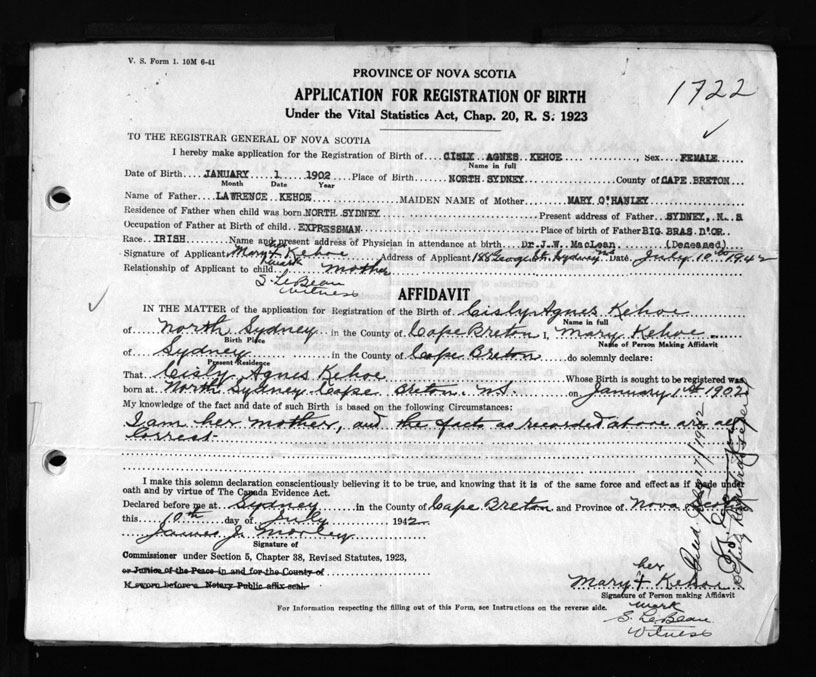 V. S. Form 1. 10M 6-41
1722
PROVINCE OF NOVA SCOTIA
APPLICATION FOR REGISTRATION OF BIRTH
Under the Vital Statistics Act, Chap. 20, R. S. 1923
TO THE REGISTRAR GENERAL OF NOVA SCOTIA
I hereby make application for the Registration of Birth of CISLY AGNES KEHOE, Sex FEMALE
Name in full
Date of Birth JANUARY 1 1902 Place of Birth NORTH SYDNEY County of CAPE BRETON
Month Date Year
Name of Father LAWRENCE KEHOE MAIDEN NAME of Mother MARY O'HANLEY
Residence of Father when child was born NORTH SYDNEY Present address of Father SYDNEY, N. S
Occupation of Father at Birth of child EXPRESSMAN Place of birth of Father BIG BRAS D'OR
Race IRISH Name and present address of Physician in attendance at birth Dr J. W. MacLean (Deceased)
her
Signature of Applicant Mary X Kehoe Address of Applicant 188 George St. Sydney NS Date July 10th 1942
mark
Relationship of Applicant to child mother
S. LeBeau
Witness
AFFIDAVIT
IN THE MATTER of the application for Registration of the Birth of Cisly Agnes Kehoe
Name in full
of North Sydney in the County of Cape Breton I, Mary Kehoe
Birth Place Name of Person Making Affidavit
of Sydney in the County of Cape Breton do solemnly declare:
Present Residence
That Cisly Agnes Kehoe Whose Birth is sought to be registered was
born at North Sydney Cape Breton N.S. on January 1st 1902
My knowledge of the fact and date of such Birth is based on the following Circumstances:
I am her mother, and the facts as recorded above are all
correct.
I make this solemn declaration conscientiously believing it to be true, and knowing that it is of the same force and effect as if made under
oath and by virtue of The Canada Evidence Act.
Declared before me at Sydney in the County of Cape Breton and Province of Nova Scotia
this 10th day of July 1942
James J.
Signature of
Commissioner under Section 5, Chapter 38, Revised Statutes, 1923,
or Justice of the Peace in and for the County of
If sworn before a Notary Public affix seal.
her
Mary X Kehoe
Signature of Person making Affidavit
mark
S. LeBeau
Witness
For Information respecting the filling out of this Form, see Instructions on the reverse side.